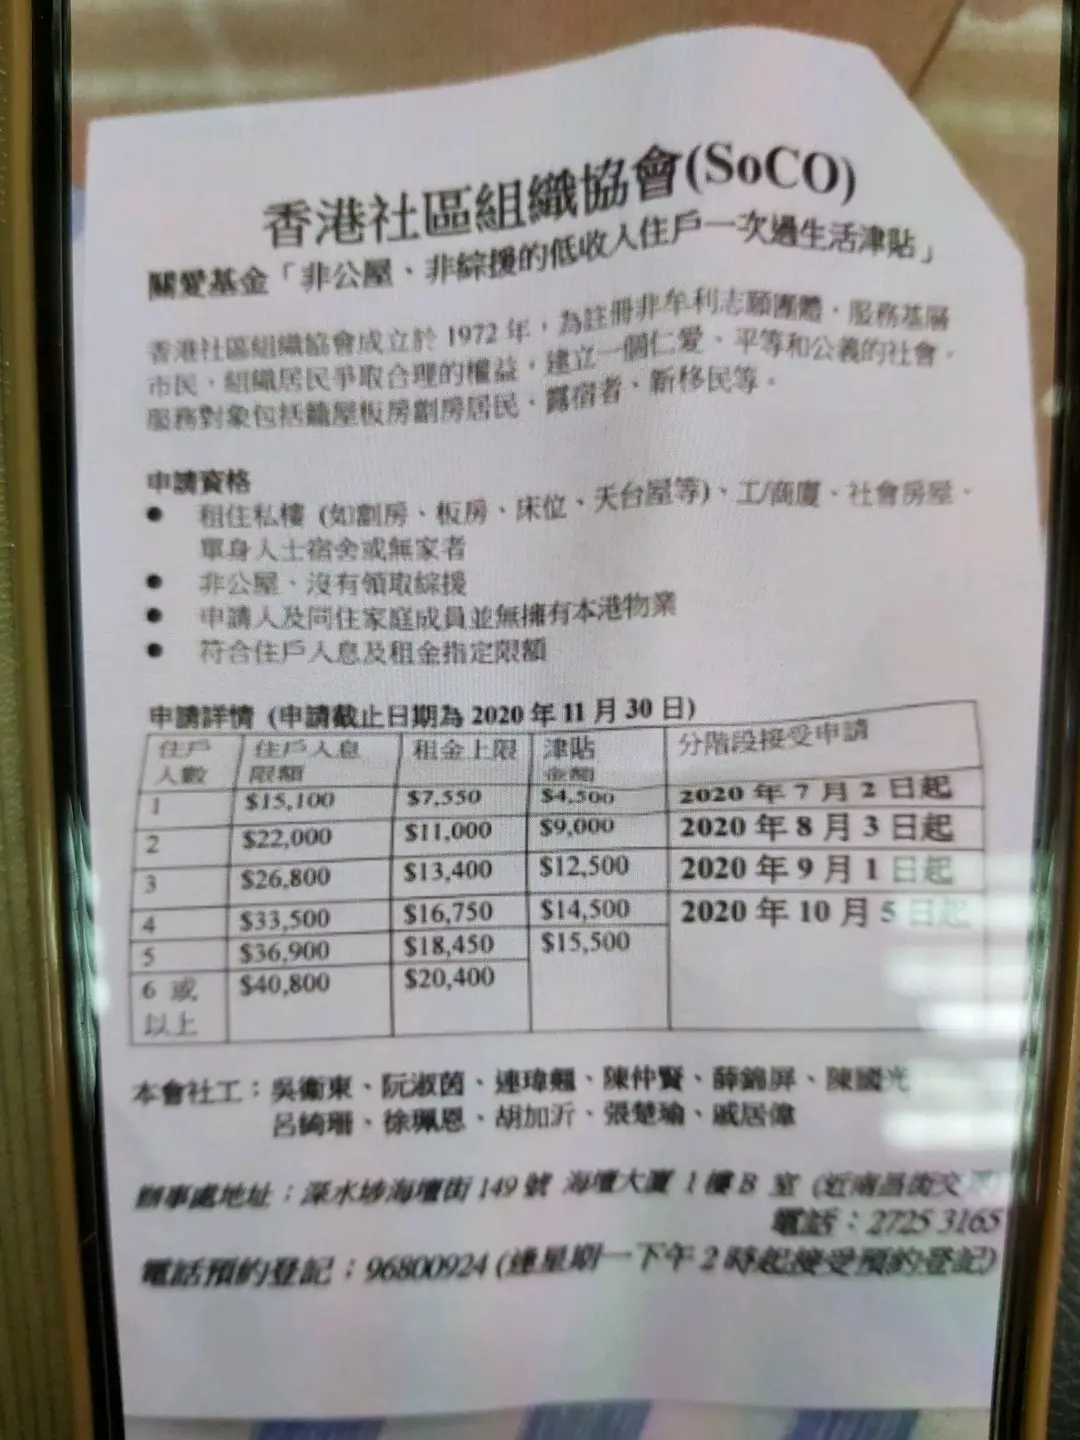 香港社區組織協會(SoCO)
關愛基金「非公屋、非綜援的低收入住戶一次過生活津貼」
香港社區組織協會成立於 1972 年，為註冊非牟利志願團體，服務基層
市民，組織居民爭取合理的權益，建立一個仁愛、平等和公義的社會。
服務對象包括籠屋板房劏房居民、露宿者、新移民等。
申請資格
● 租住私樓 (如劏房、板房、床位、天台屋等)、工/商廈、社會房屋、
單身人士宿舍或無家者
● 非公屋、沒有領取綜援
● 申請人及同住家庭成員並無擁有本港物業
● 符合住戶入息及租金指定限額
申請詳情 (申請截止日期為 2020 年 11 月 30 日)
住戶人數 住戶入息限額 租金上限 津貼金額 分階段接受申請
1 $15,100 $7,550 $4,500 2020 年 7 月 2 日起
2 $22,000 $11,000 $9,000 2020 年 8 月 3 日起
3 $26,800 $13,400 $12,500 2020 年 9 月 1 日起
4 $33,500 $16,750 $14,500 2020 年 10 月 5 日起
5 $36,900 $18,450 $15,500
6 或以上 $40,800 $20,400
本會社工：吳衞東、阮淑茵、連瑋翹、陳仲賢、薛錦屏、陳國光
呂綺珊、徐珮恩、胡加沂、張楚瑜、戚居偉
辦事處地址：深水埗海壇街 149 號 海壇大廈 1 樓 B 室 (近南昌街交
電話：2725 3165
電話預約登記：96800924 (逢星期一下午 2 時起接受預約登記)